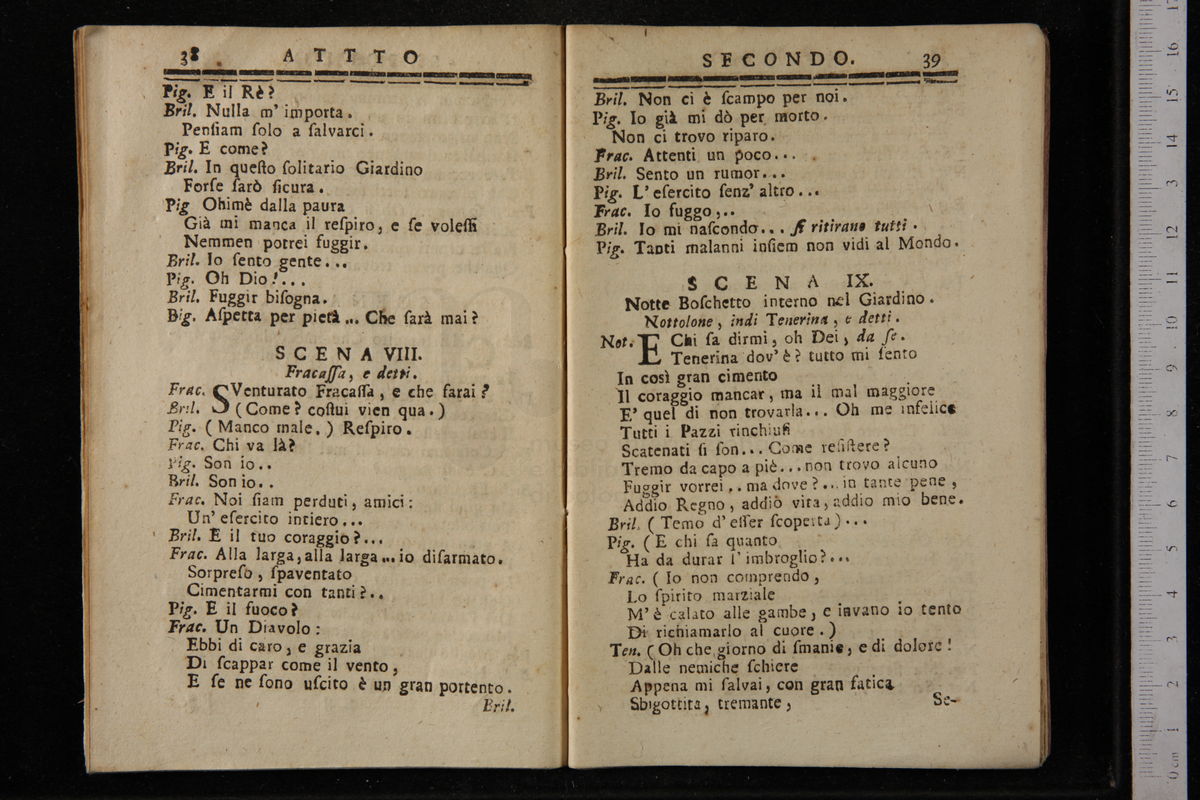 38 . ATTTO
Pig. E il Rè?
Bril. Nulla m' importa.
Penſiam ſolo a ſalvarci.
Pig. E come?
Bril. In queſto ſolitario Giardino
Forſe ſarò ſicura.
Pig Ohimè dalla paura
Già mi manca il reſpiro, e ſe voleſſi
Nemmen potrei fuggir.
Bril. Io ſento gente...
Pig. Oh Dio!...
Bril. Fuggir biſogna.
Big. Aſpetta per pietà... Che ſarà mai?
SCENA VIII.
Fracaſſa, e detti.
Frac. SVenturato Fracaſſa, e che farai?
Bril. (Come? coſtui vien qua.)
Pig. (Manco male.) Reſpiro.
Frac. Chi va là?
Pig. Son io..
Bril. Son io..
Frac. Noi ſiam perduti, amici:
Un' eſercito intiero...
Bril. E il tuo coraggio?...
Frac. Alla larga, alla larga... io diſarmato.
Sorpreſo, ſpaventato
Cimentarmi con tanti?..
Pig. E il fuoco?
Frac. Un Diavolo:
Ebbi di caro, e grazia
Di ſcappar come il vento,
E ſe ne ſono uſcito è un gran portento.
Bril.
SECONDO. 39
Bril. Non ci è ſcampo per noi.
Pig. Io già mi dò per morto.
Non ci trovo riparo.
Frac. Attenti un poco...
Bril. Sento un rumor...
Pig. L' eſercito ſenz' altro...
Frac. Io fuggo,..
Bril. Io mi naſcondo... ſi ritirano tutti.
Pig. Tanti malanni inſiem non vidi al Mondo.
SCENA IX.
Notte Boſchetto interno nel Giardino.
Nottolone, indi Tenerina, e detti.
Not. E Chi ſa dirmi, oh Dei, da ſe.
Tenerina dov' è? tutto mi ſento
In così gran cimento
Il coraggio mancar, ma il mal maggiore
E' quel di non trovarla... Oh me infelice
Tutti i Pazzi rinchiuſi
Scatenati ſi ſon... Come reſiſtere?
Tremo da capo a piè... non trovo alcuno
Fuggir vorrei.. ma dove?... in tante pene,
Addio Regno, addiò vita, addio mio bene.
Bril. (Temo d' eſſer ſcoperta)...
Pig. (E chi ſa quanto
Ha da durar l' imbroglio?...
Frac. (Io non comprendo,
Lo ſpirito marziale
M' è calato alle gambe, e invano io tento
Di richiamarlo al cuore.)
Ten. (Oh che giorno di ſmanie, e di dolore!
Dalle nemiche ſchiere
Appena mi ſalvai, con gran fatica
Sbigottita, tremante,
Se-
0 cm 1 2 3 4 5 6 7 8 9 10 11 12 13 14 15 16 17